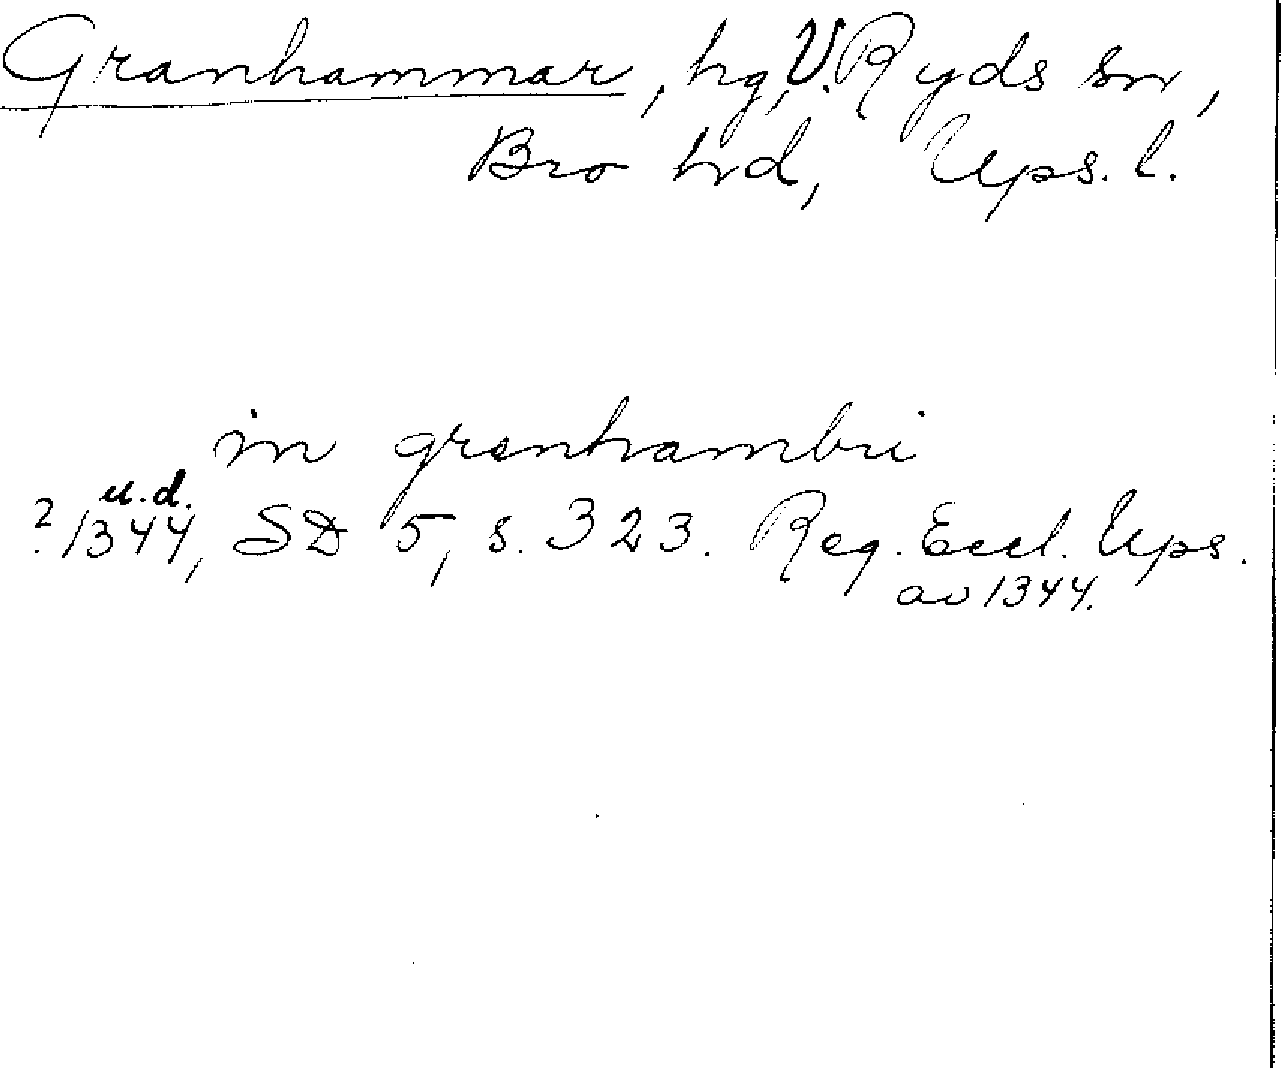 Granhammar, hg, V. Ryds sn,
Bro hd, Ups. l.
in granhambri
u.d.
? 1344, SD 5, s. 323. Reg. Eccl. Ups.
av 1344.